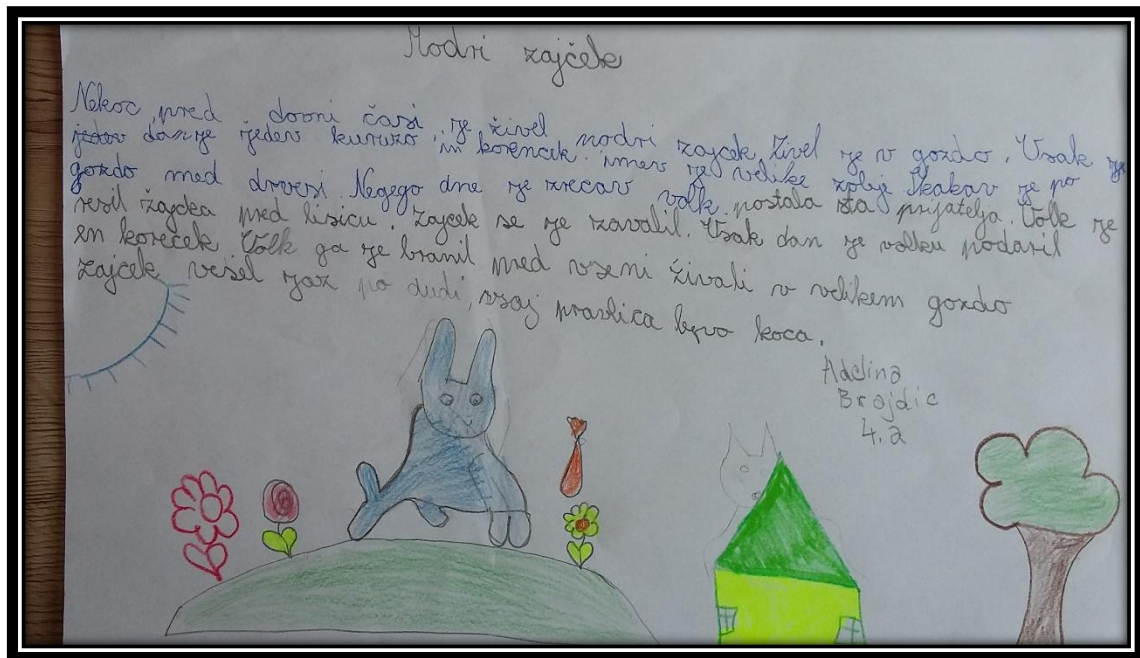 Modri zajček
Nekoc, pred davni časi, je živel modri zajcek. Živel je v gozdo. Vsak je
jedov danje jedev kuruzo in korencek. imev je velike zobje Skakav je po
gozdo med drvesi. Negego dne je srecav volk. postala sta prijatelja Volk je
resil žajcka pred lisicu. Zajcek se je zavalil. Vsak dan je volku podaril
en korecek Volk ga je branil pred vsemi živali v velikem gozdo
Zajček vešel zjaz po dudi, vsaj pravlica bgvo koca.
Adelina
Brajdic
4.a